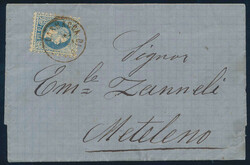 Signor
Em:le Zanneli
Meteleno